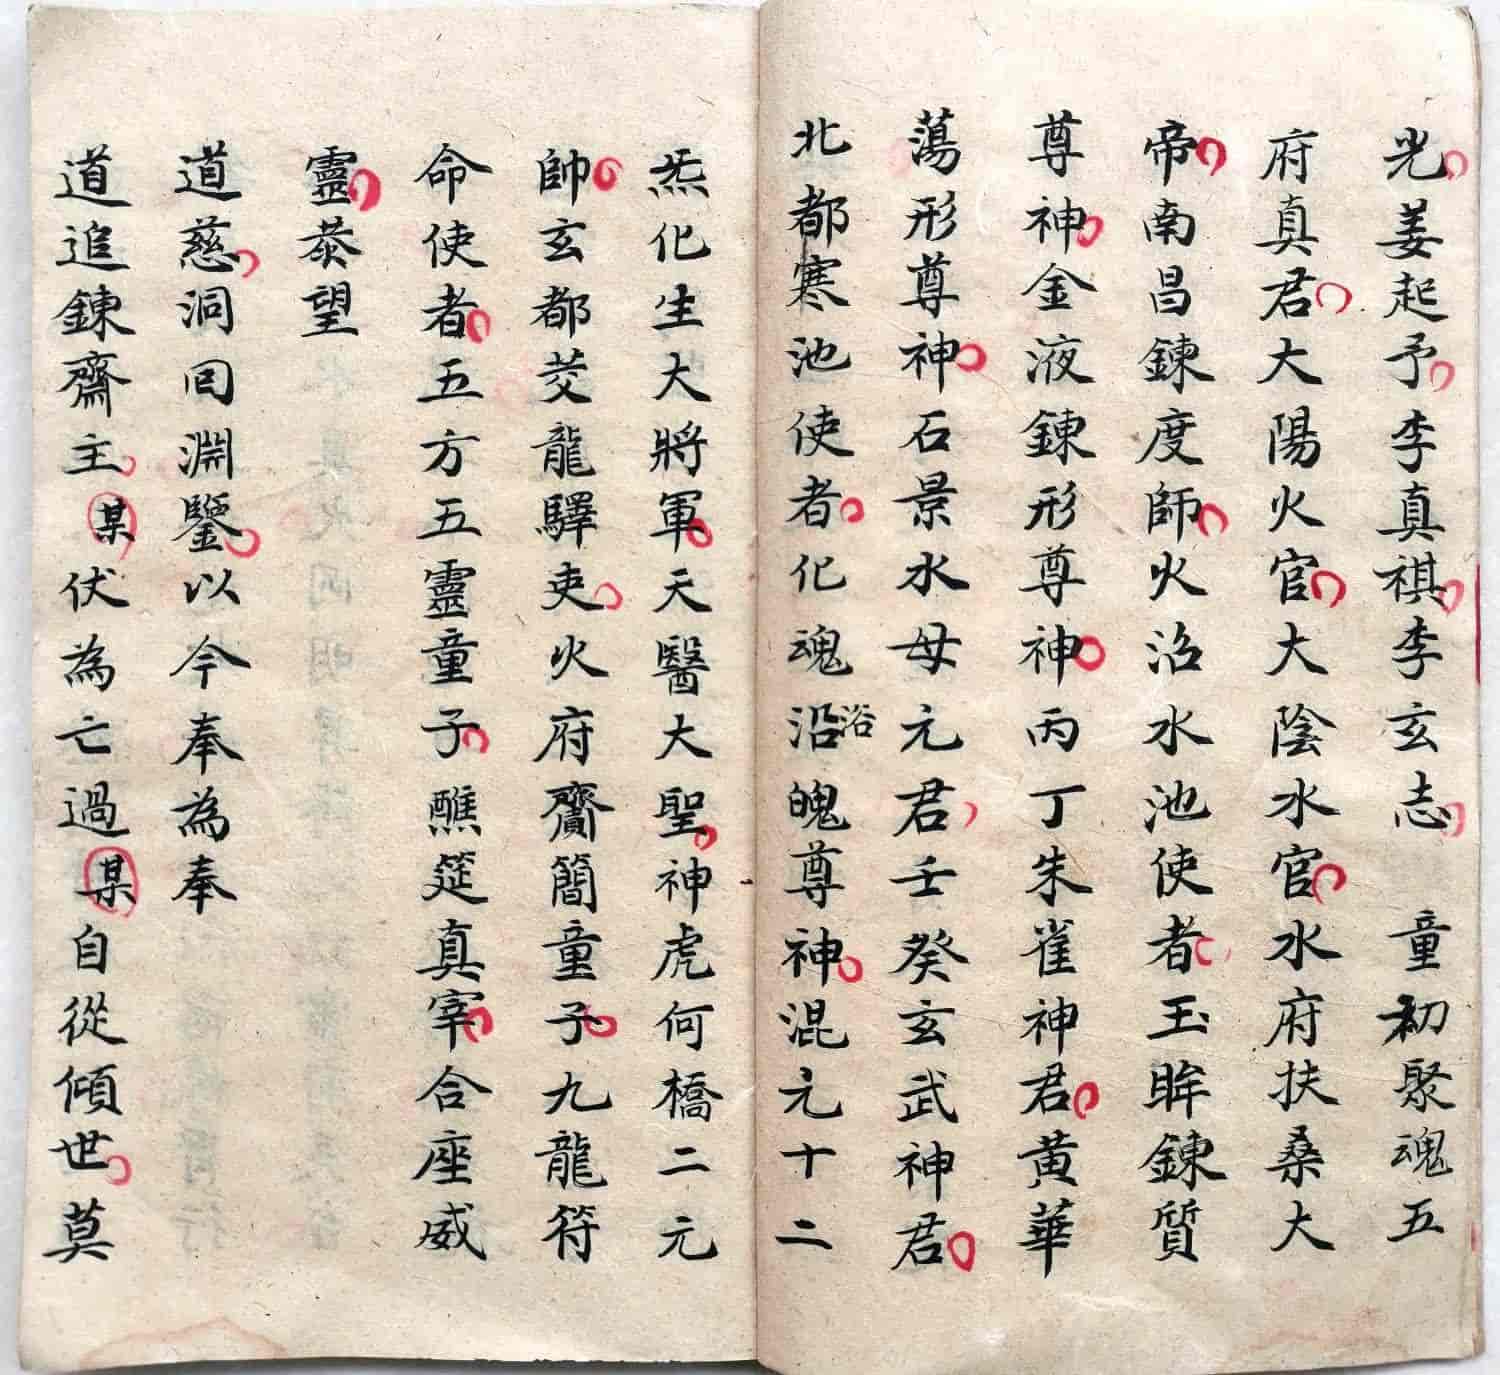 光姜起予李真祺李玄志 童初聚魂五
府真君大陽火官大陰水官水府扶桑大
帝南昌鍊度師火沼水池使者玉眸鍊質
尊神金液鍊形尊神丙丁朱雀神君黃華
蕩形尊神石景水母元君壬癸玄武神君
北都寒池使者化魂沿浴魄尊神混元十二
炁化生大將軍天醫大聖神虎何橋二元
帥玄都茭龍驛吏火府齎簡童子九龍符
命使者五方五靈童子醮筵真宰合座威
靈恭望
道慈洞回淵鑒以今奉為奉
道追鍊齋主某伏為亡過某自從傾世莫